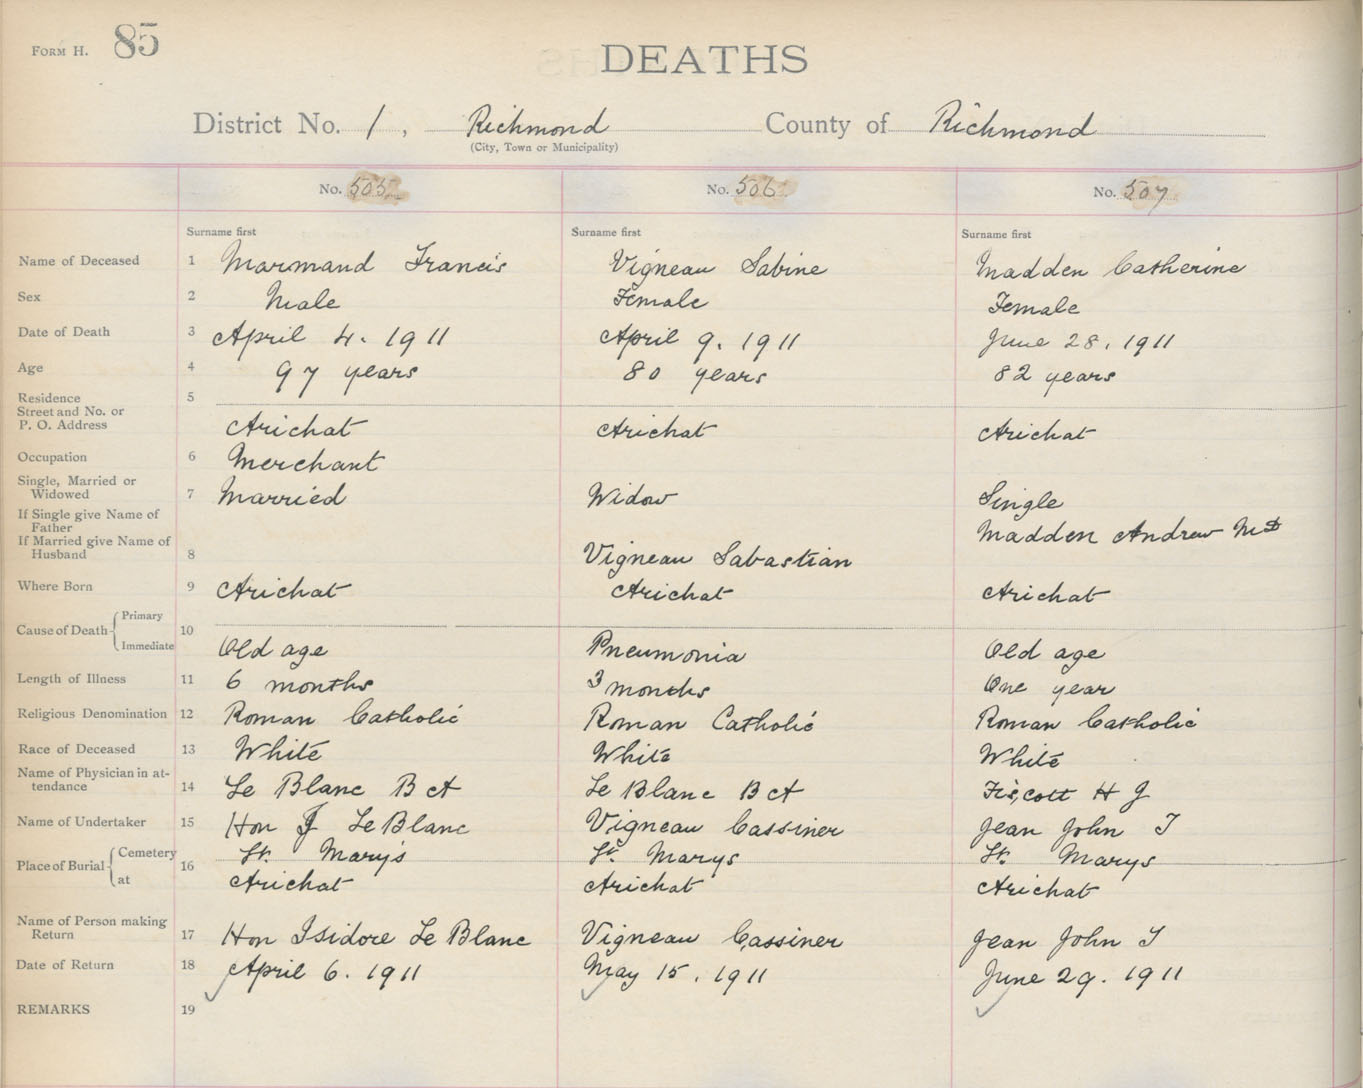 FORM H. 85
DEATHS
District No. 1, Richmond County of Richmond
(City, Town or Municipality)
No. 505 No. 506 No. 507
Surname first Surname first Surname first
Name of Deceased 1 Marmaud Francis Vigneau Sabine Madden Catherine
Sex 2 Male Female Female
Date of Death 3 April 4. 1911 April 9. 1911 June 28. 1911
Age 4 97 years 80 years 82 years
Residence 5
Street and No. or
P. O. Address Arichat Arichat Arichat
Occupation 6 Merchant
Single, Married or
Widowed 7 Married Widow Single
If Single give Name of
Father Madden Andrew
If Married give Name of
Husband 8 Vigneau Sabastian
Where Born 9 Arichat Arichat Arichat
Cause of Death Primary
10
Immediate Old age Pneumonia Old age
Length of Illness 11 6 months 3 months One year
Religious Denomination 12 Roman Catholic Roman Catholic Roman Catholic
Race of Deceased 13 White White White
Name of Physician in at-
tendance 14 Le Blanc B A Le Blanc B A H J
Name of Undertaker 15 Hon Le Blanc Vigneau Cassiner Jean John T
Place of Burial Cemetery St. Mary's St. Marys St. Marys
16
at Arichat Arichat Arichat
Name of Person making
Return 17 Hon Isidore Le Blanc Vigneau Cassiner Jean John T
Date of Return 18 April 6. 1911 May 15. 1911 June 29. 1911
REMARKS 19